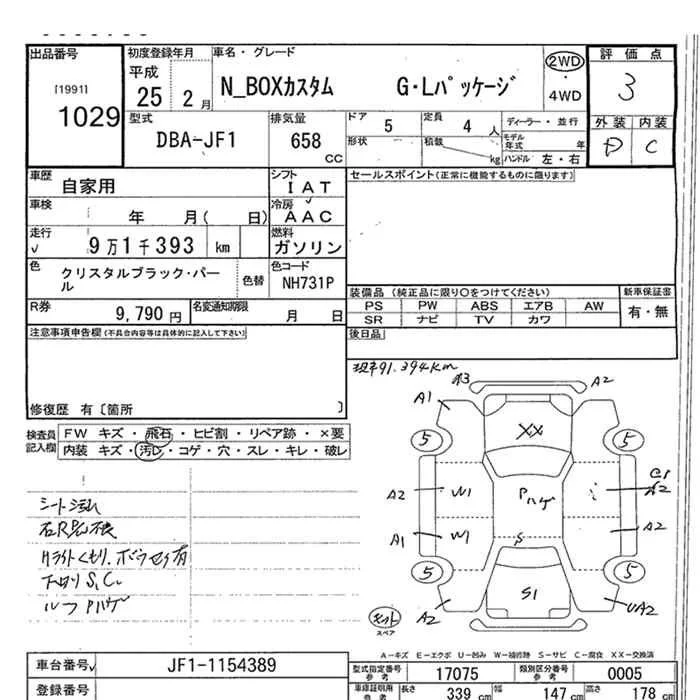 出品番号
[1991]
1029
初度登録年月
平成
25 2月
車名・グレード
N_BOXカスタム G・Lパッケージ
2WD
4WD
評価点
3
外装 内装
D C
型式
DBA-JF1
排気量
658
CC
ドア
5
定員
4人
ディーラー・並行
形状
積載
kg
モデル年式
年
ハンドル 左・右
車歴
自家用
シフト
IAT
車検
年 月( 日)
冷房
AAC
走行
9万1千393 km
燃料
ガソリン
色
クリスタルブラック・パール
色替
色コード
NH731P
R券
9,790円
名変通知期限
月 日
セールスポイント(正常に機能するものに限ります)
装備品 (純正品に限り○をつけてください)
新車保証書
PS PW ABS エアB AW
有・無
SR ナビ TV カワ
後日品
注意事項申告欄(不具合内容等は具体的に記入して下さい)
修復歴 有〔箇所 〕
検査員記入欄
FW キズ・飛石・ヒビ割・リペア跡・×要
内装 キズ・汚レ・コゲ・穴・スレ・キレ・破レ
シート汚れ
下廻りS,C
ルーフPハゲ
現車91,394km
A3
A2
A1
XX
5
5
A2
W1
Pハゲ
A2
A1
W1
S
A2
5
5
S1
A2
UA2
スペア
A-キズ E-エクボ U-凹み W-補修跡 S-サビ C-腐食 XX-交換済
車台番号
JF1-1154389
型式指定番号
参考
17075
類別区分番号
参考
0005
登録番号
車庫証明用
参考
長さ
339 cm
幅
147 cm
高さ
178 cm